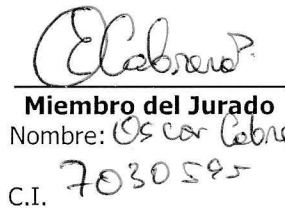 ECabrera
Miembro del Jurado
Nombre: Oscar Cabre
C.I. 7030595